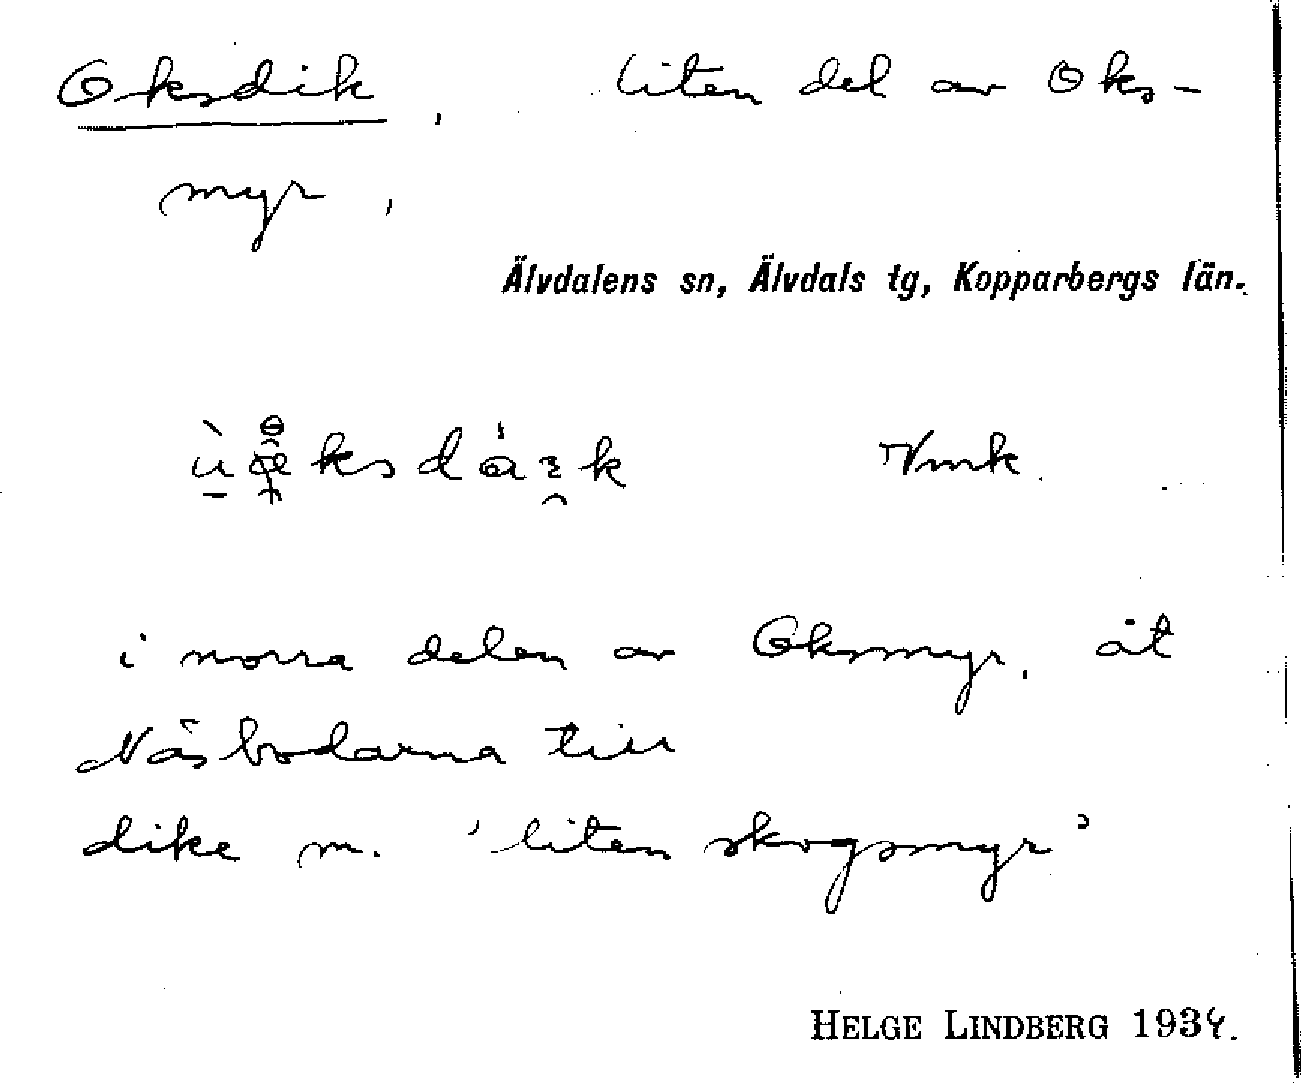 Oksdik, liten del av Oks-
myr,
Älvdalens sn, Älvdals tg, Kopparbergs län.
Vmk.
i norra delen av Oksmyr, åt
Näsbodarna till
dike m. 'liten skogsmyr'
HELGE LINDBERG 1934.